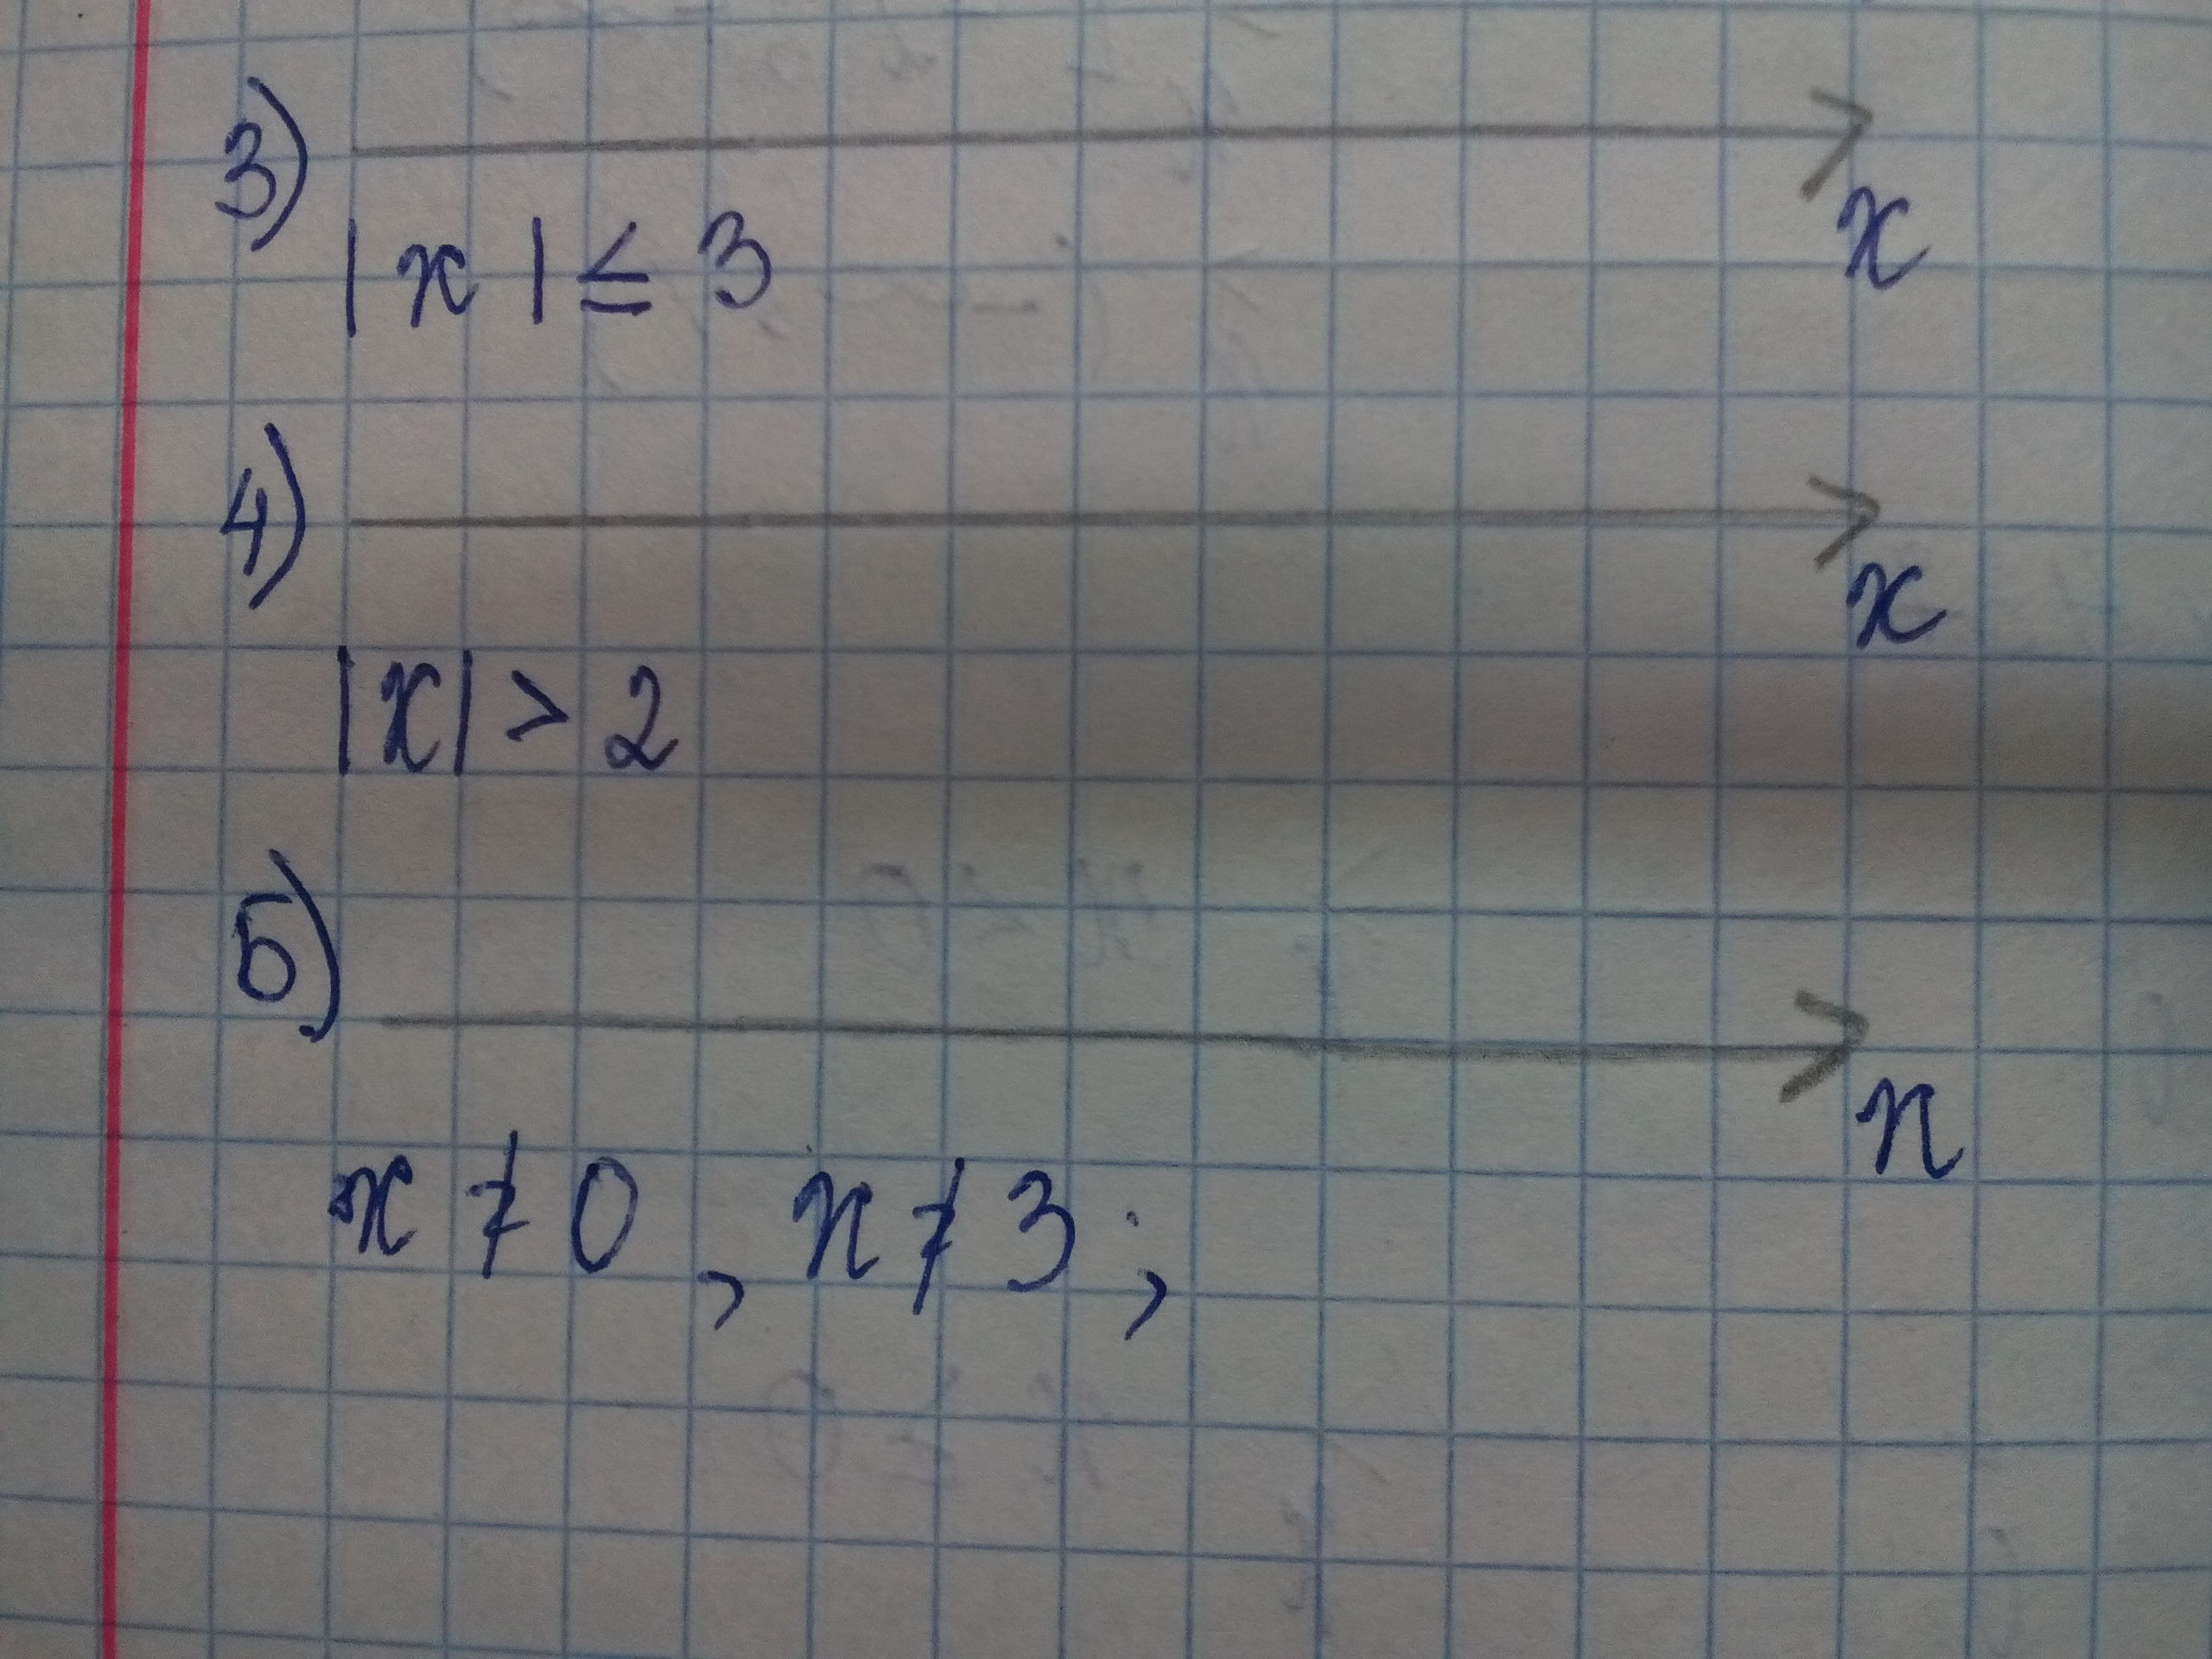 3)
x
|x| ≤ 3
4)
x
|x| > 2
5)
x
x ≠ 0, x ≠ 3;